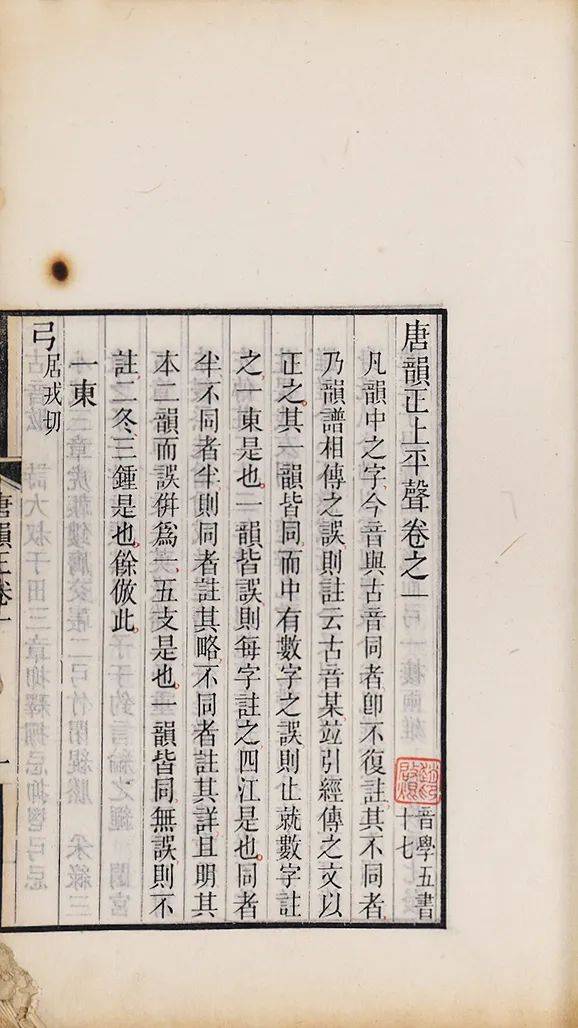 唐韻正上平聲卷之一
音學五書
十七
凡韻中之字今音與古音同者卽不復註其不同者
乃韻譜相傳之誤則註云古音某竝引經傳之文以
正之其一韻皆同而中有數字之誤則止就數字註
之一東是也一韻皆誤則每字註之四江是也同者
半不同者半則同者註其略不同者註其詳且明其
本二韻而誤併爲一五支是也一韻皆同無誤則不
註二冬三鍾是也餘倣此
一東
弓居戎切
唐韻正卷一
一